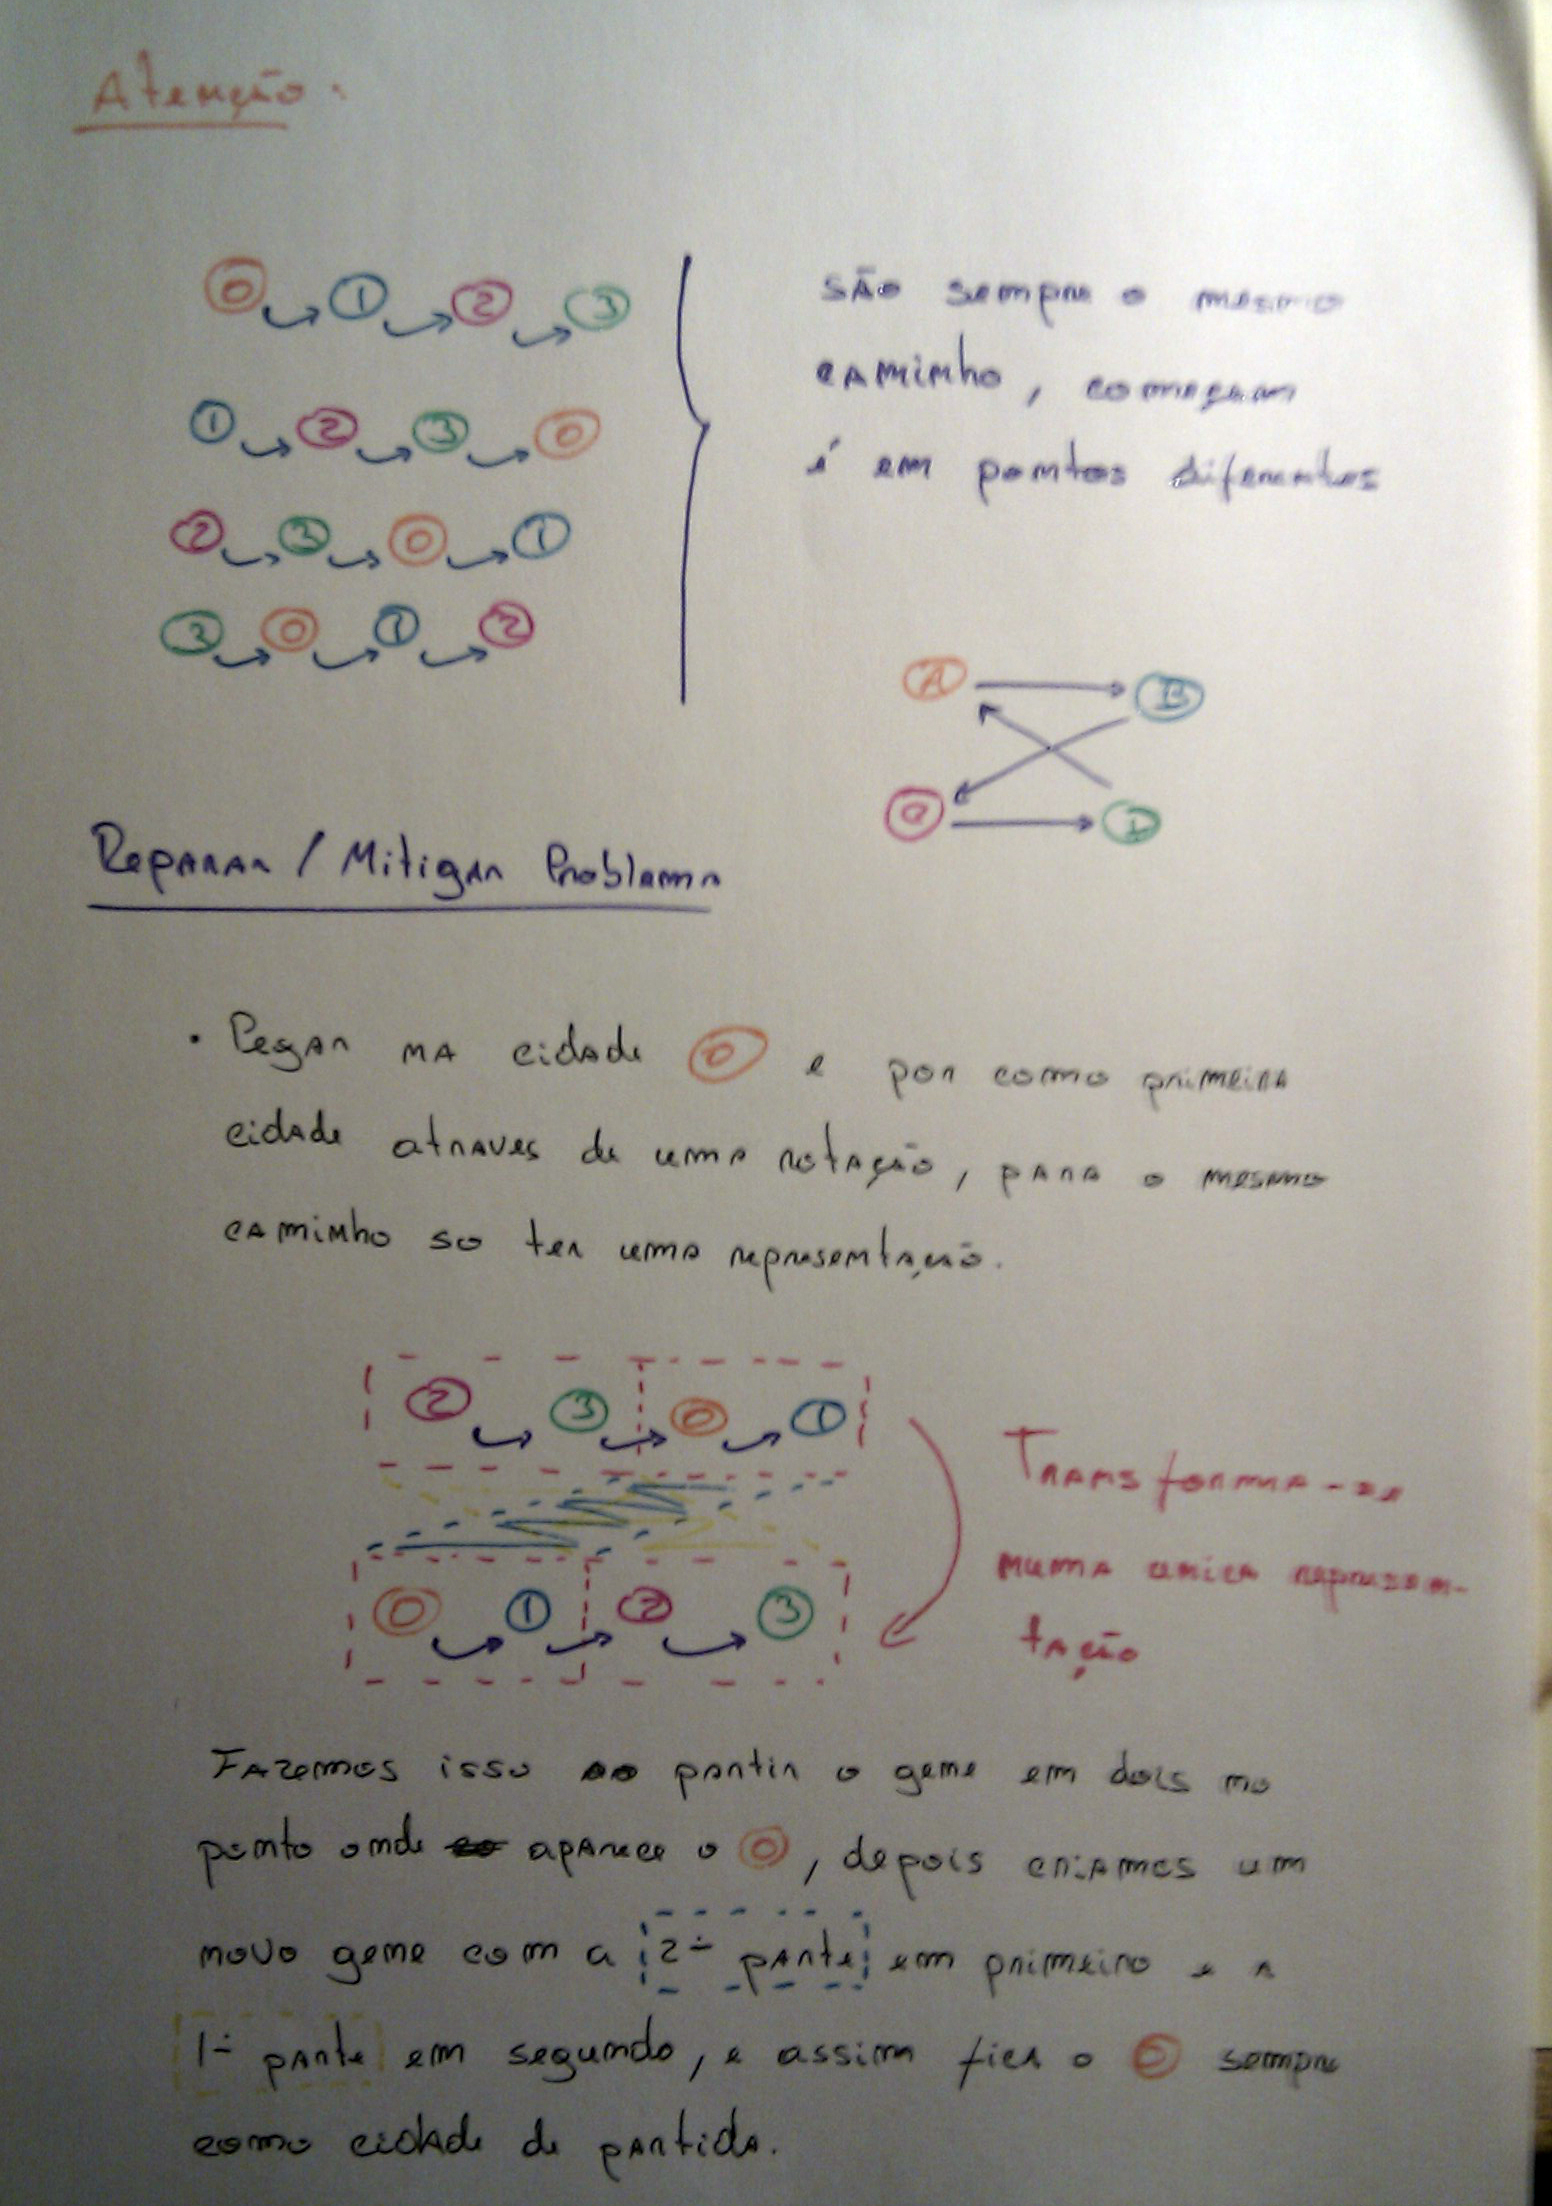 Atenção:
0 1 2 3
1 2 3 0
2 3 0 1
3 0 1 2
são sempre o mesmo
caminho, começam
é em pontos diferentes
A B
C D
Reparar / Mitigar Problema
• Pegar na cidade 0 e por como primeira
cidade atraves de uma rotação, para o mesmo
caminho so ter uma representação.
2 3 0 1
0 1 2 3
Transforma-se
numa unica represen-
tação
Fazemos isso ao partir o gene em dois no
ponto onde aparece o 0, depois criamos um
novo gene com a 2ª parte em primeiro e a
1ª parte em segundo, e assim fica o 0 sempre
como cidade de partida.